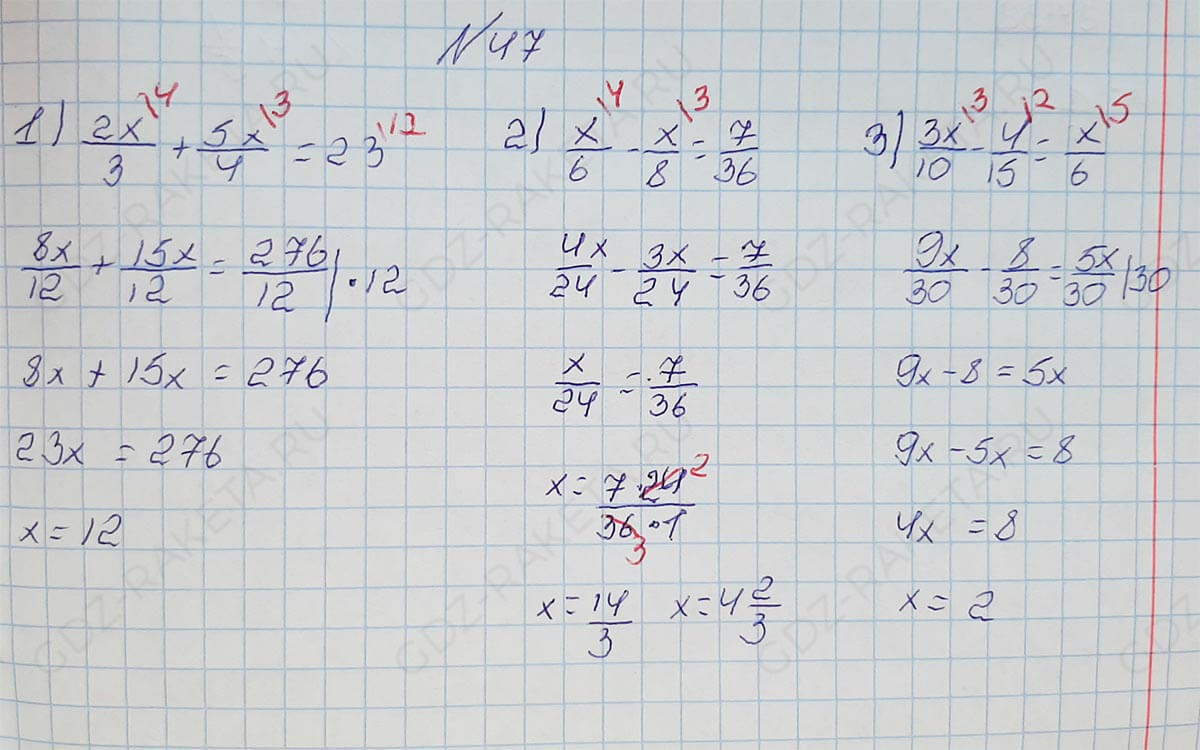 №47
1) 2x/3 \4 + 5x/4 \3 = 23 \12
8x/12 + 15x/12 = 276/12 | ·12
8x + 15x = 276
23x = 276
x = 12
2) x/6 \4 - x/8 \3 = 7/36
4x/24 - 3x/24 = 7/36
x/24 = 7/36
x = 7·24 2/36·1 3
x = 14/3 x = 4 2/3
3) 3x/10 \3 - 4/15 \2 = x/6 \5
9x/30 - 8/30 = 5x/30 |30
9x - 8 = 5x
9x - 5x = 8
4x = 8
x = 2
GDZ-RAKETA.RU